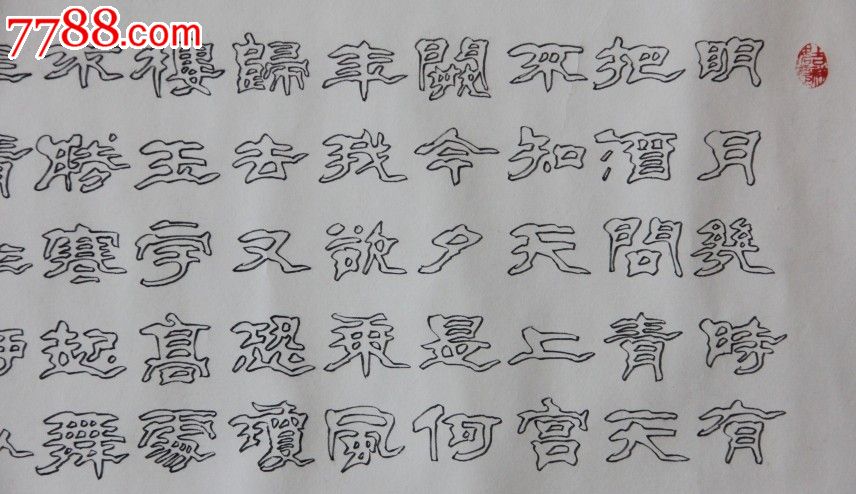 7788.com
明月幾時有
把酒問青天
不知天上宮
闕今夕是何
年我欲乘風
歸去又恐瓊
樓玉宇高處
不勝寒起舞